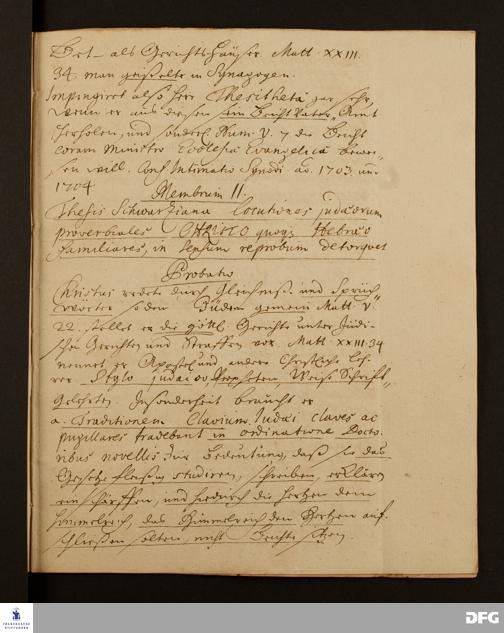 Bet- als Gerichts Häuser. Matt. XXIII.
34. man geißelte in Synagogen.
Impingiret also Herr Thesitheta gar sehr,
wenn er aus diesen sein Beicht Vater Amt
herholen, und sonderl. Num. V. 7 die Beicht
coram Ministro Ecclesiae Evangelicae bewei-
sen will. Conf. Intimatio Synodi ao. 1703. und
1704.
Membrum II.
Thesis Schwartziana locutiones judaeorum
proverbiales CHRISTO quoq; Hebraeo
familiares, in sensum reprobum detorquet
Probatio
Christus redete durch Gleichniß und Sprich
wörter so den Jüden gemein Matt. V.
22. stellet er die göttl. Gerichte unter Jüdi-
schen Gerichten und Straffen vor. Matt. XXIII. 34
nennet er Apostel und andere Christliche Leh-
rer Stylo judaico Propheten Weise Schrifft-
gelehrten. Insonderheit braucht er
a. Traditionem Clavium. Judaei claves ac
pugillares tradebant in ordinatione Docto-
ribus novellis zur Bedeutung, daß sie das
Gesetze fleißig studiren, schreiben, erklären
einschärffen, und hiedurch die Hertzen dem
Himmelreich, das Himmelreich den Hertzen auf-
schließen solten, nicht Beichte sitzen.
FRANCKESCHE
STIFTUNGEN
DFG